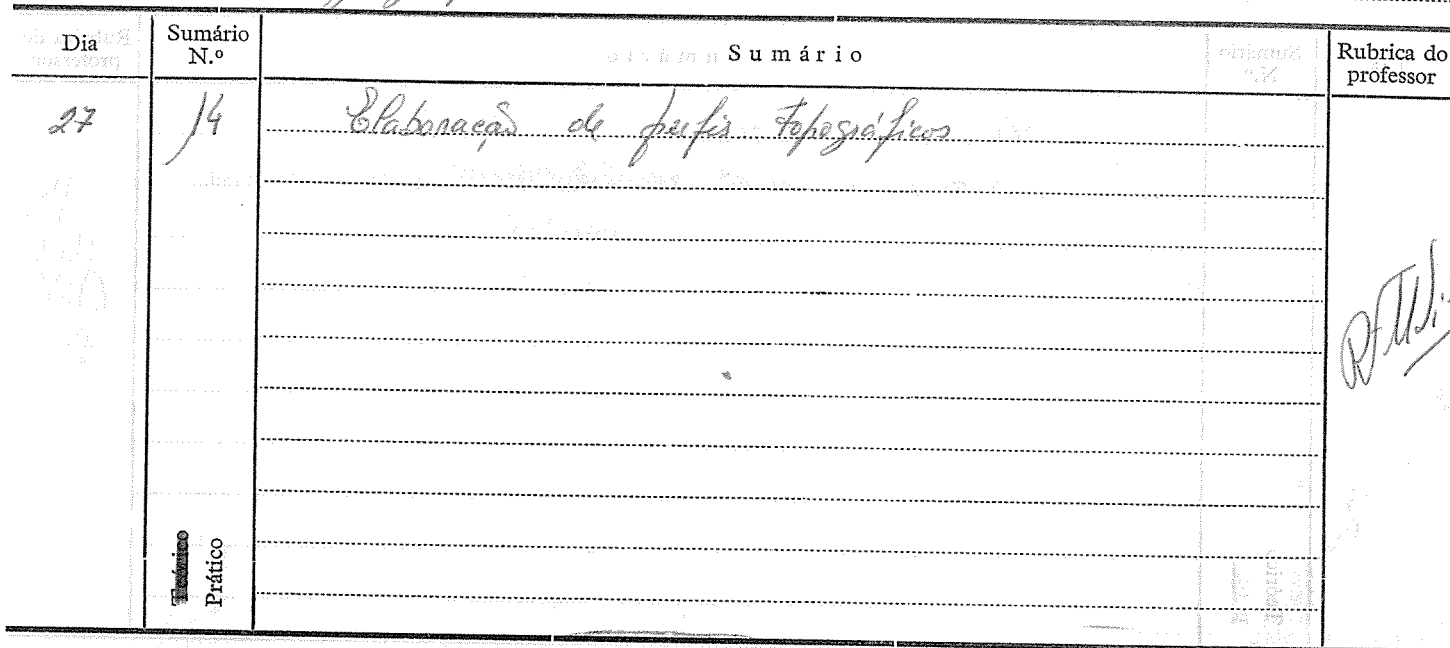 Dia Sumário N.º Sumário Rubrica do professor
27 14 Elaboração de perfis topográficos
Teórico
Prático